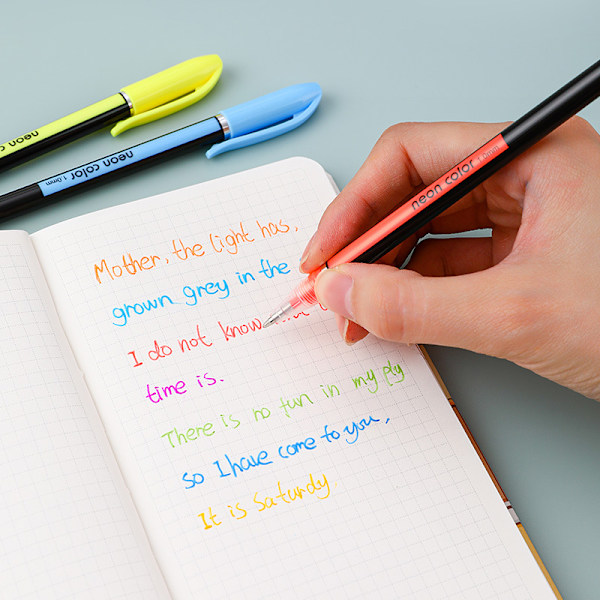 neon color
neon color 1.0mm
neon color 1.0mm
Mother, the light has,
grown grey in the
I do not know
time is.
There is no fun in my ply
so I have come to you,
It is Saturdy